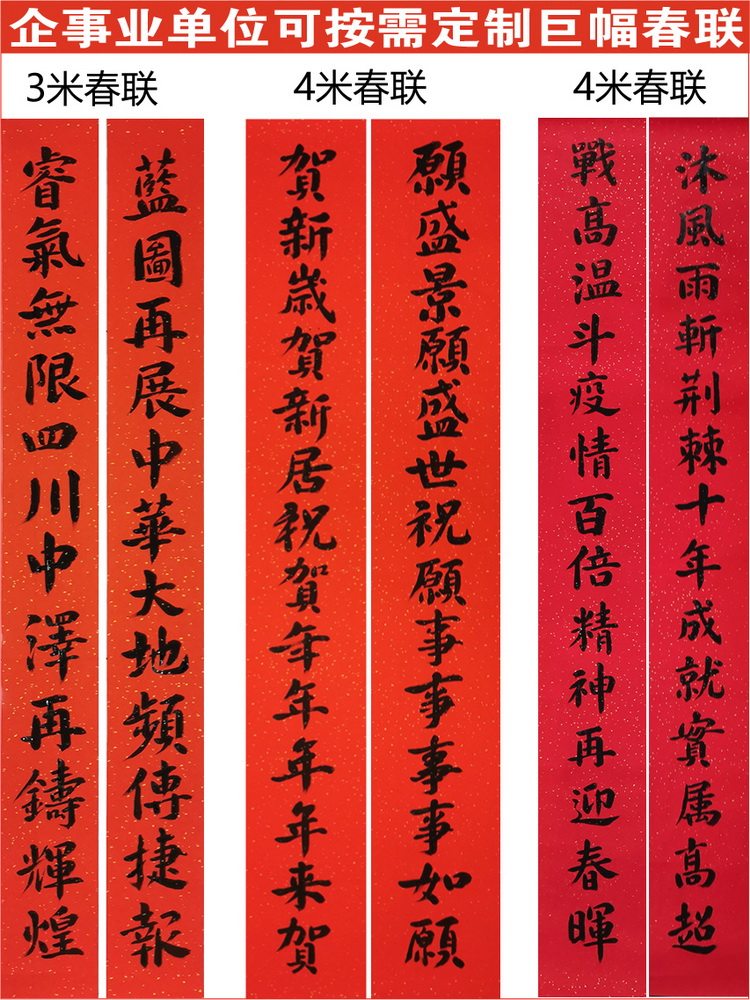 企事业单位可按需定制巨幅春联
3米春联
4米春联
4米春联
睿氣無限四川中澤再鑄輝煌
藍圖再展中華大地頻傳捷報
賀新歲賀新居祝賀年年年年来賀
願盛景願盛世祝願事事事事如願
戰高温斗疫情百倍精神再迎春暉
沐風雨斬荆棘十年成就實属高超